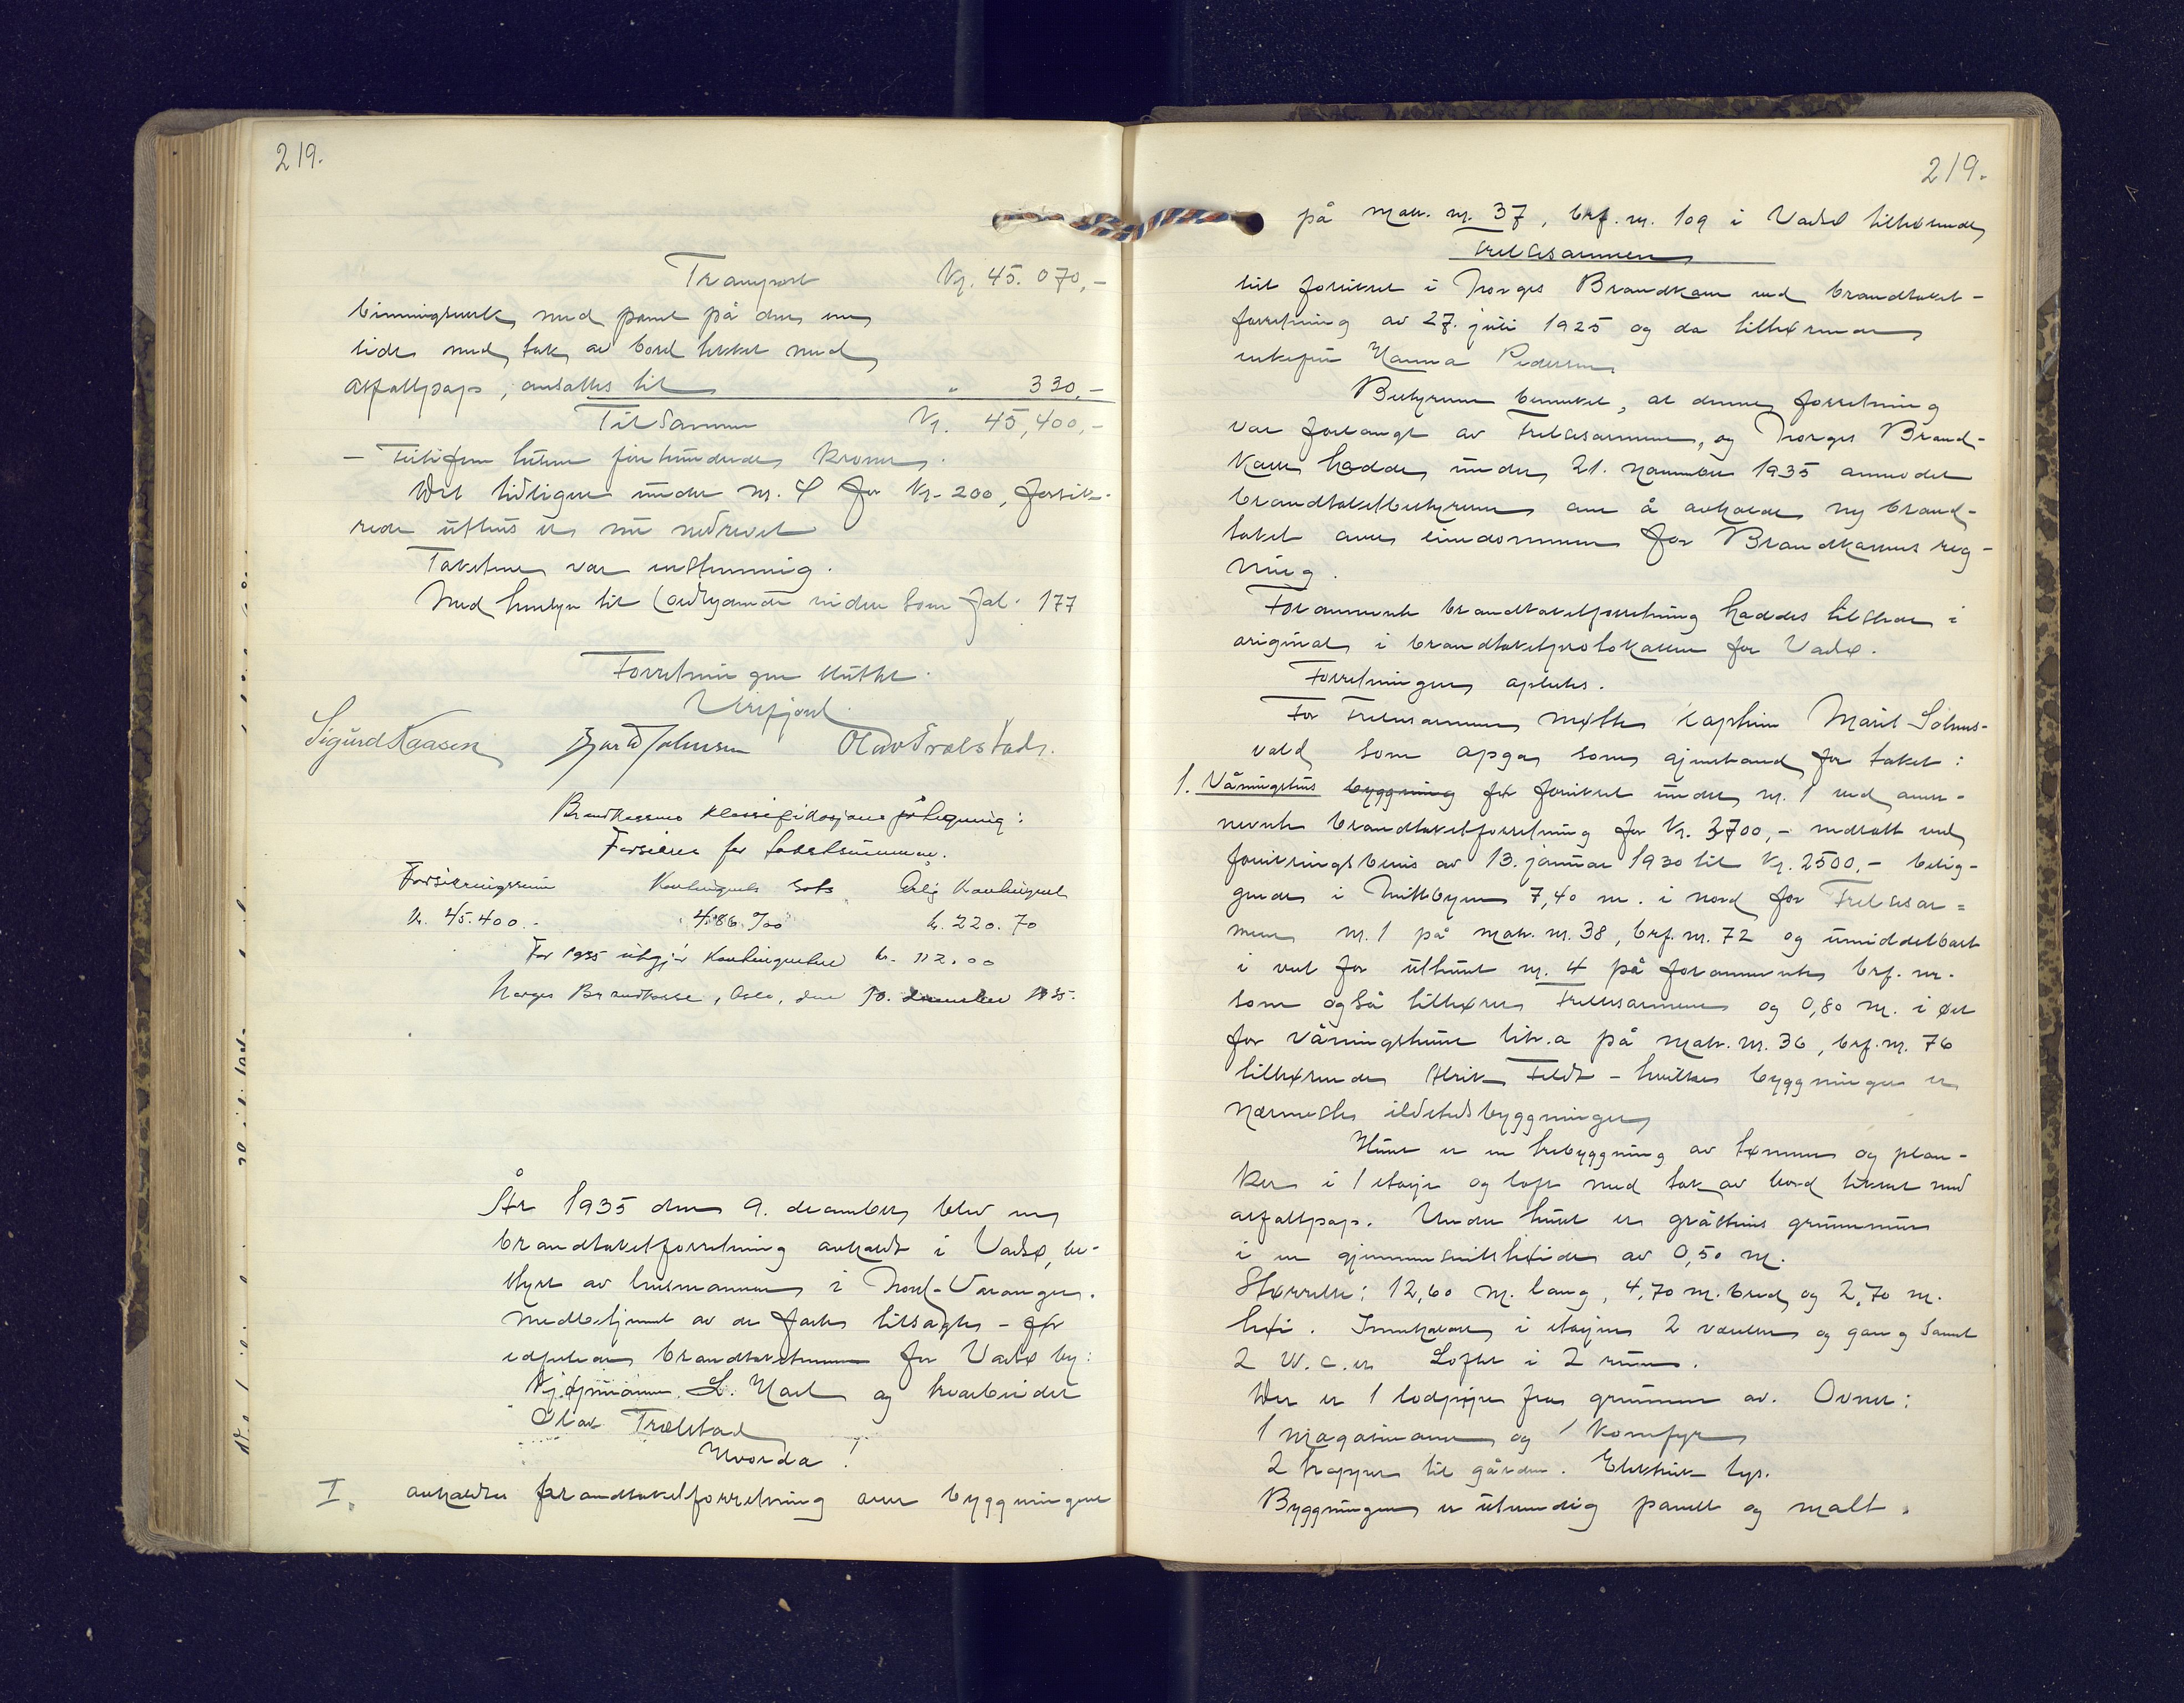 219.
Transport Kr. 45.070,-
binningsverk med panel på den ene
side med tak av bord tekket med
asfaltpapp, ansattes til " 330,-
Tilsammen Kr. 45,400,-
- Førtifem tusen fire hundrede kroner.
Det tidligere under nr. 4 for Kr. 200, forsik-
rede uthus er nu nedrevet
Taksten var enstemmig.
Med hensyn til lovhjemmel videre som fol. 177
Forretningen sluttet.
Virifjord
Sigurd Kaasen Olav Trælstad.
Brandkassens klassifikasjons påtegning:
Forsikres for takstsummen.
Forsikringssum Kontingents sats Årlig Kontingent
kr. 45.400.- 4.86 ‰ kr. 220.70
For 1935 utgjør kontingenten kr. 112.00
Norges Brandkasse, Oslo, den 30. desember 1935.
År 1935 den 9. desember blev en
brandtakstforretning avholdt i Vadsø, be-
styrt av lensmannen i Nord-Varanger.
Medbetjent av de faste tilsagte - før
edfestede brandtakstmenn for Vadsø by:
Kjøpmann L. Hael og trearbeider
Olav Trælstad
Hvorda!
I. avholdtes brandtakstforretning over bygningene
219.
på matr. nr. 37, brf. nr. 109 i Vadsø tilhørende
Frelsesarmeen
til forsikret i Norges Brandkasse ved brandtakst-
forretning av 27. juli 1925 og da tilhørende
enkefru Hanna Pedersen
Bestyreren bemerket, at denne forretning
var forlangt av Frelsesarmeen, og Norges Brand-
kasse hadde under 21. november 1935 anmodet
brandtakstbestyreren om å avholde ny brand-
takst over eiendommen for Brandkassens reg-
ning.
Forannevnte brandtakstforretning haddes tilstede i
original i brandtakstprotokollen for Vadsø.
Forretningen oplestes.
For Frelsesarmeen møtte kaptein Marit Solnes-
vold som opga som gjenstand for takst:
1. Våningshus byggning før forsikret under nr. 1 ved oven-
nevnte brandtakstforretning for Kr. 3700,- nedsatt ved
forsikringsbevis av 13. januar 1930 til Kr. 2500.- belig-
gende i Midtbyen 7,40 m. i nord for Frelsesar=
meen nr. 1 på matr. nr. 38, brf. nr. 72 og umiddelbart
i vest for uthuset nr. 4 på forannevnte brf. nr.
som også tilhører Frelsesarmeen og 0,80 m. i øst
for våningshuset litr. a på matr. nr. 36, brf. nr. 76
tilhørende Ulrik Feldt - hvilke byggninger er
nærmeste ildstedsbyggninger
Huset er en trebyggning av tømmer og plan-
ker i 1 etasje og loft med tak av bord tekket med
asfaltpapp. Under huset er gråstens grunnmur
i en gjennemsnittshøide av 0,50 m.
Størrelse: 12,60 m. lang, 4,70 m. bred og 2,70 m.
høi. Inneholder i etasjen 2 værelser og gang samt
2 W.c.er Loftet i 2 rum.
Der er 1 lodpipe fra grunnen av. Ovner:
1 magasinovn og 1 komfyr
2 trapper til gården. Elektrisk lys.
Byggningen er utvendig panelt og malt.